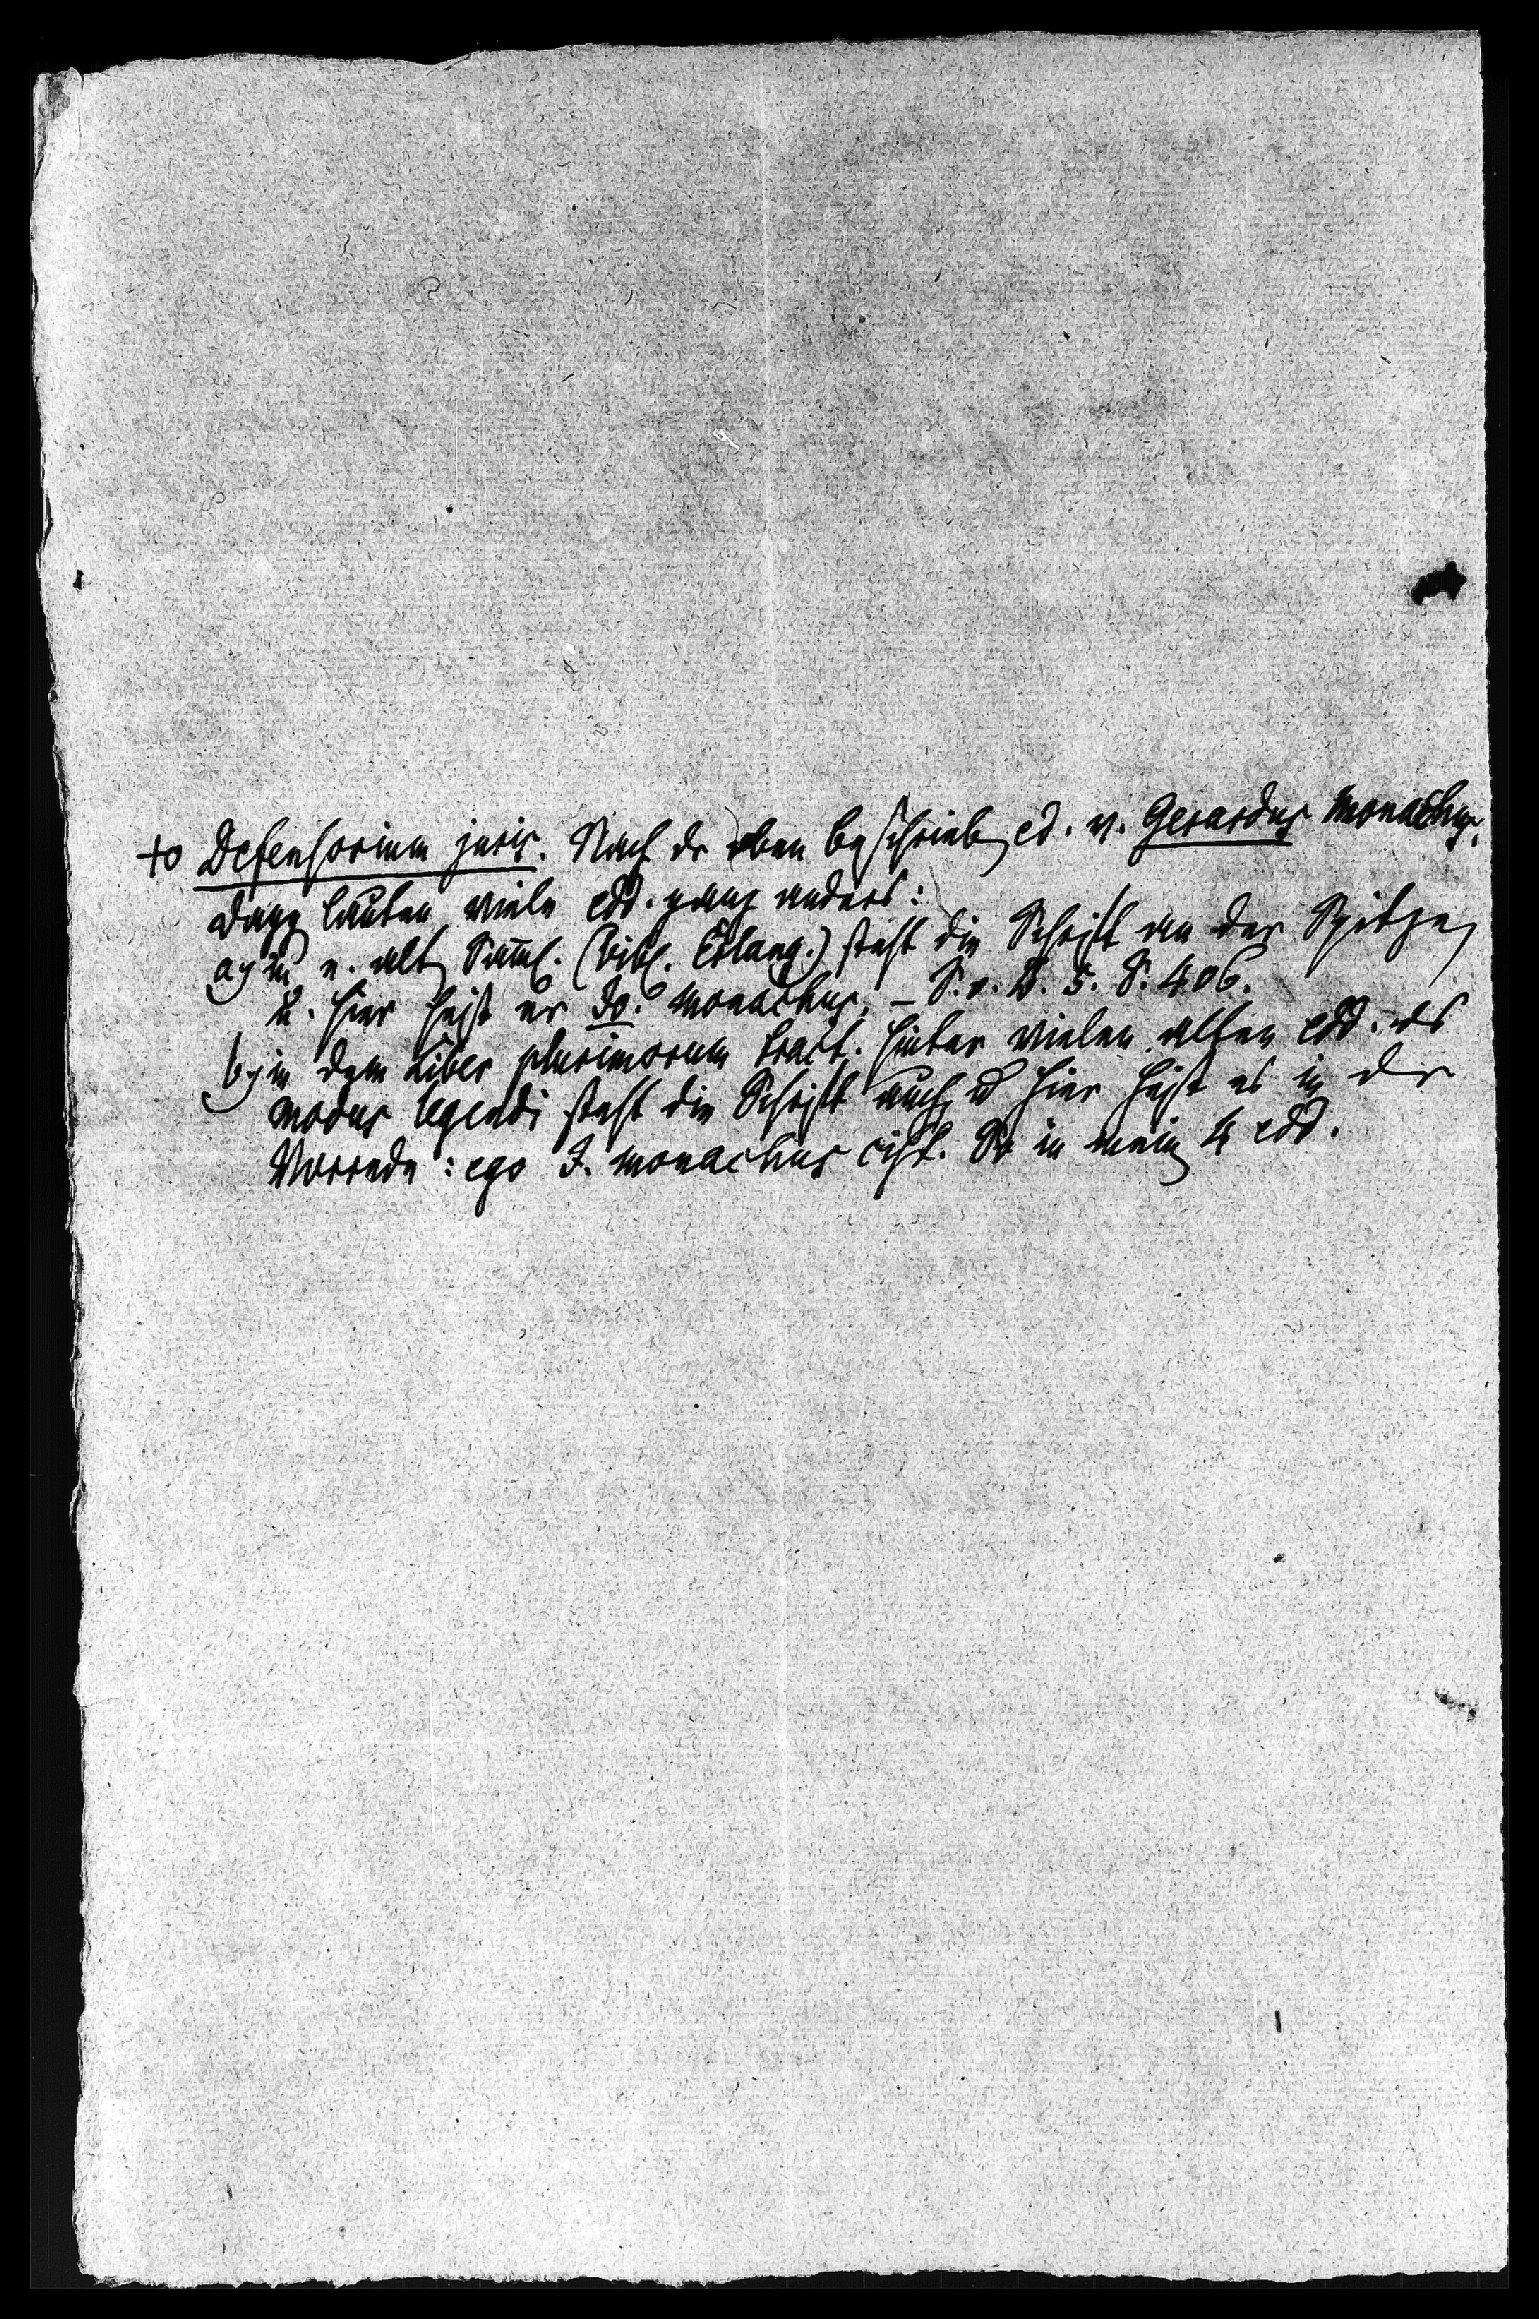 to Defensorium juris. Nach der oben beschrieben ed. v. Gerardus monachus.
dageg lauten viele edd. ganz anders:
a) in e. alt Samml. (bibl. Erlang.) steht die Schrift an der Spitze,
u. hier heißt er Jo. monachus. – S. o. B. 5. S. 406.
b) in dem Liber plurimorum tract. hinter vielen alten edd. des
modus legendi steht die Schrift auch u hier heißt es in der
Vorrede: ego J. monachus cist. So in mein 4 edd.